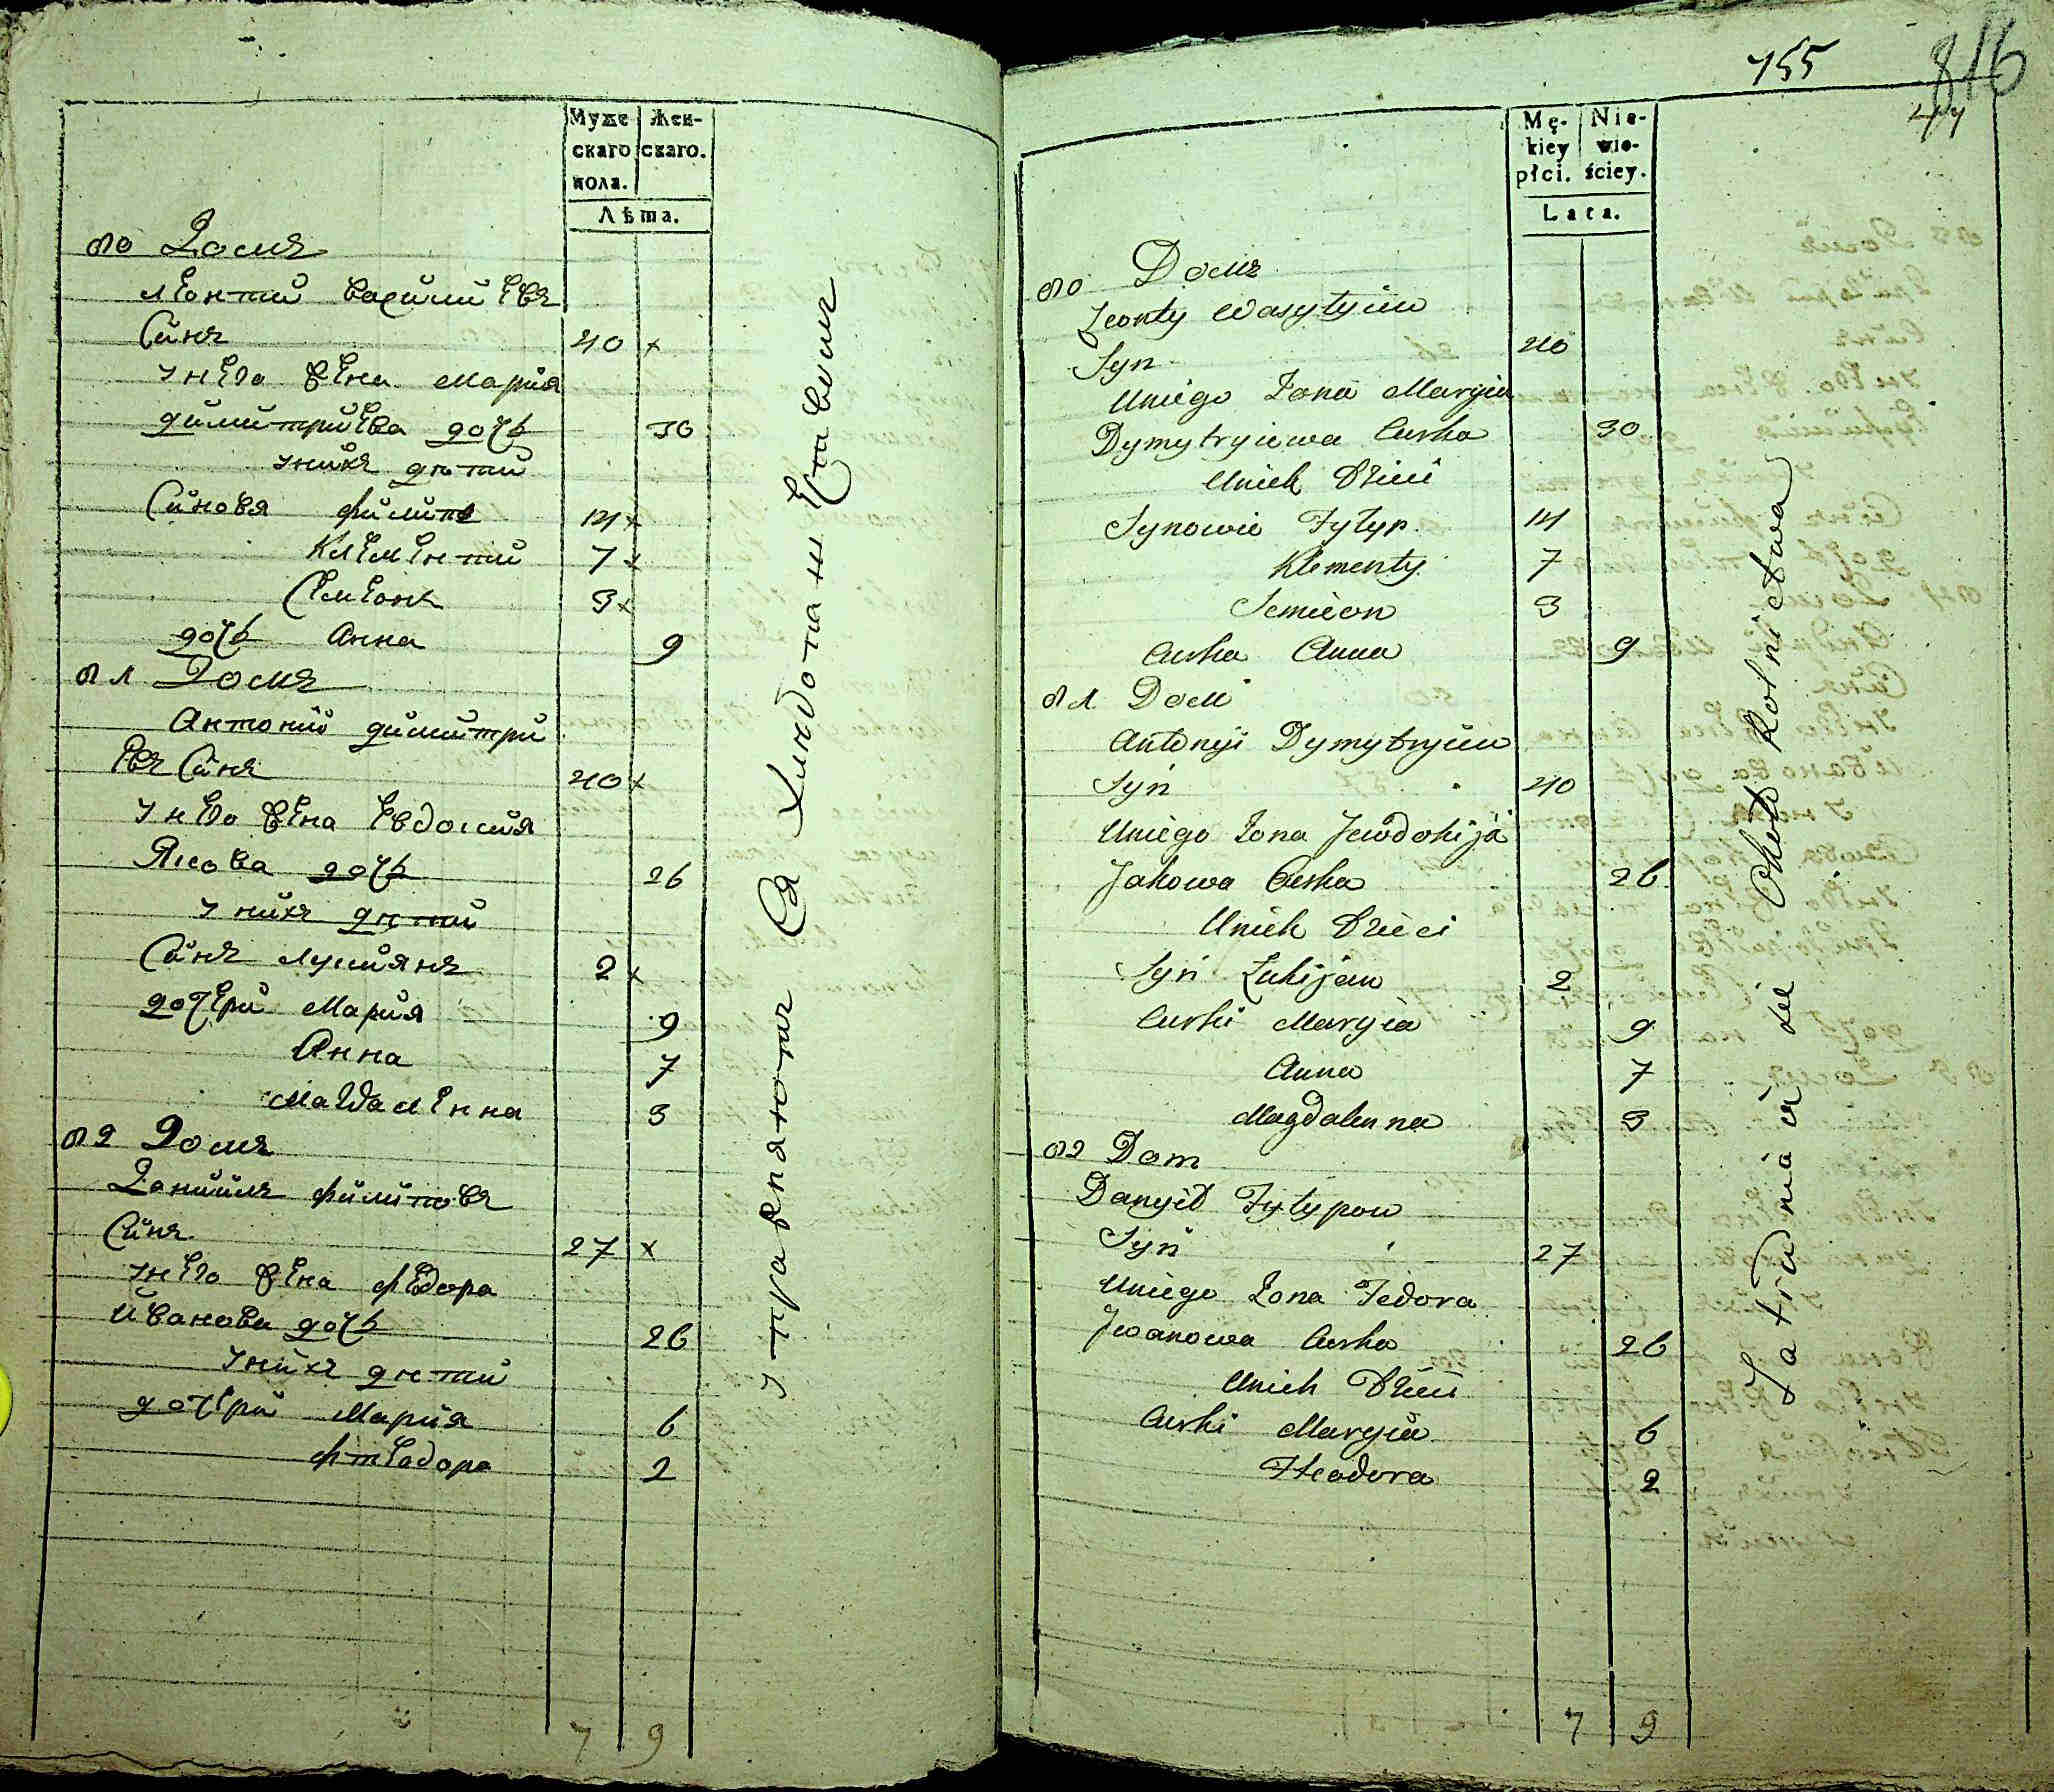 Муже
скаго
пола.
Жен-
скаго.
Лѣта.
Домъ
Леонтий василиевъ
Синъ 40 х
унего жена Мария
димитриева дочь 30
унихъ дѣти
Синовя филипъ 14 х
Клементий 7 х
Семеонъ 3 х
дочь Анна 9
Домъ
Антоний димитри
евъ Синъ 40 х
унего жена Евдокия
Якова дочь 26
унихъ дѣти
Синъ Лукиянъ 2 х
дочери Мария 9
Анна 7
Магдаленна 3
Домъ
Даниилъ филиповъ
Синъ 27 х
унего жена федора
иванова дочь 26
унихъ дѣти
дочери Мария 6
фтеодора 2
7 9
упражняются въ хлѣбопашествомъ
755
816
Mę-
kiey
płci.
Nie-
wie-
ściey.
Lata.
Домъ
Leonty Wasylyiew
Syn 40
Uniego Żona Maryia
Dymytryiewa Curka 30
Unich Dzieci
Synowie Fylyp 14
Klementy 7
Semieon 3
Curka Anna 9
Дом
Antonyi Dymytryiew
Syn 40
Uniego Żona Jewdokija
Jakowa Curka 26
Unich Dzieci
Syn Łukijan 2
Curki Maryia 9
Anna 7
Magdalenna 3
Dom
Danyił Fylypow
Syn 27
Uniego Żona Fedora
Jwanowa Curka 26
Unich Dzieci
Curki Maryia 6
Fteodora 2
7 9
Zatrudniaia sie Około Rolnictwa